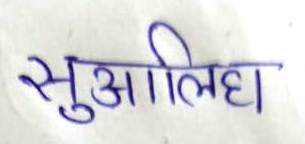 सुआलिहा